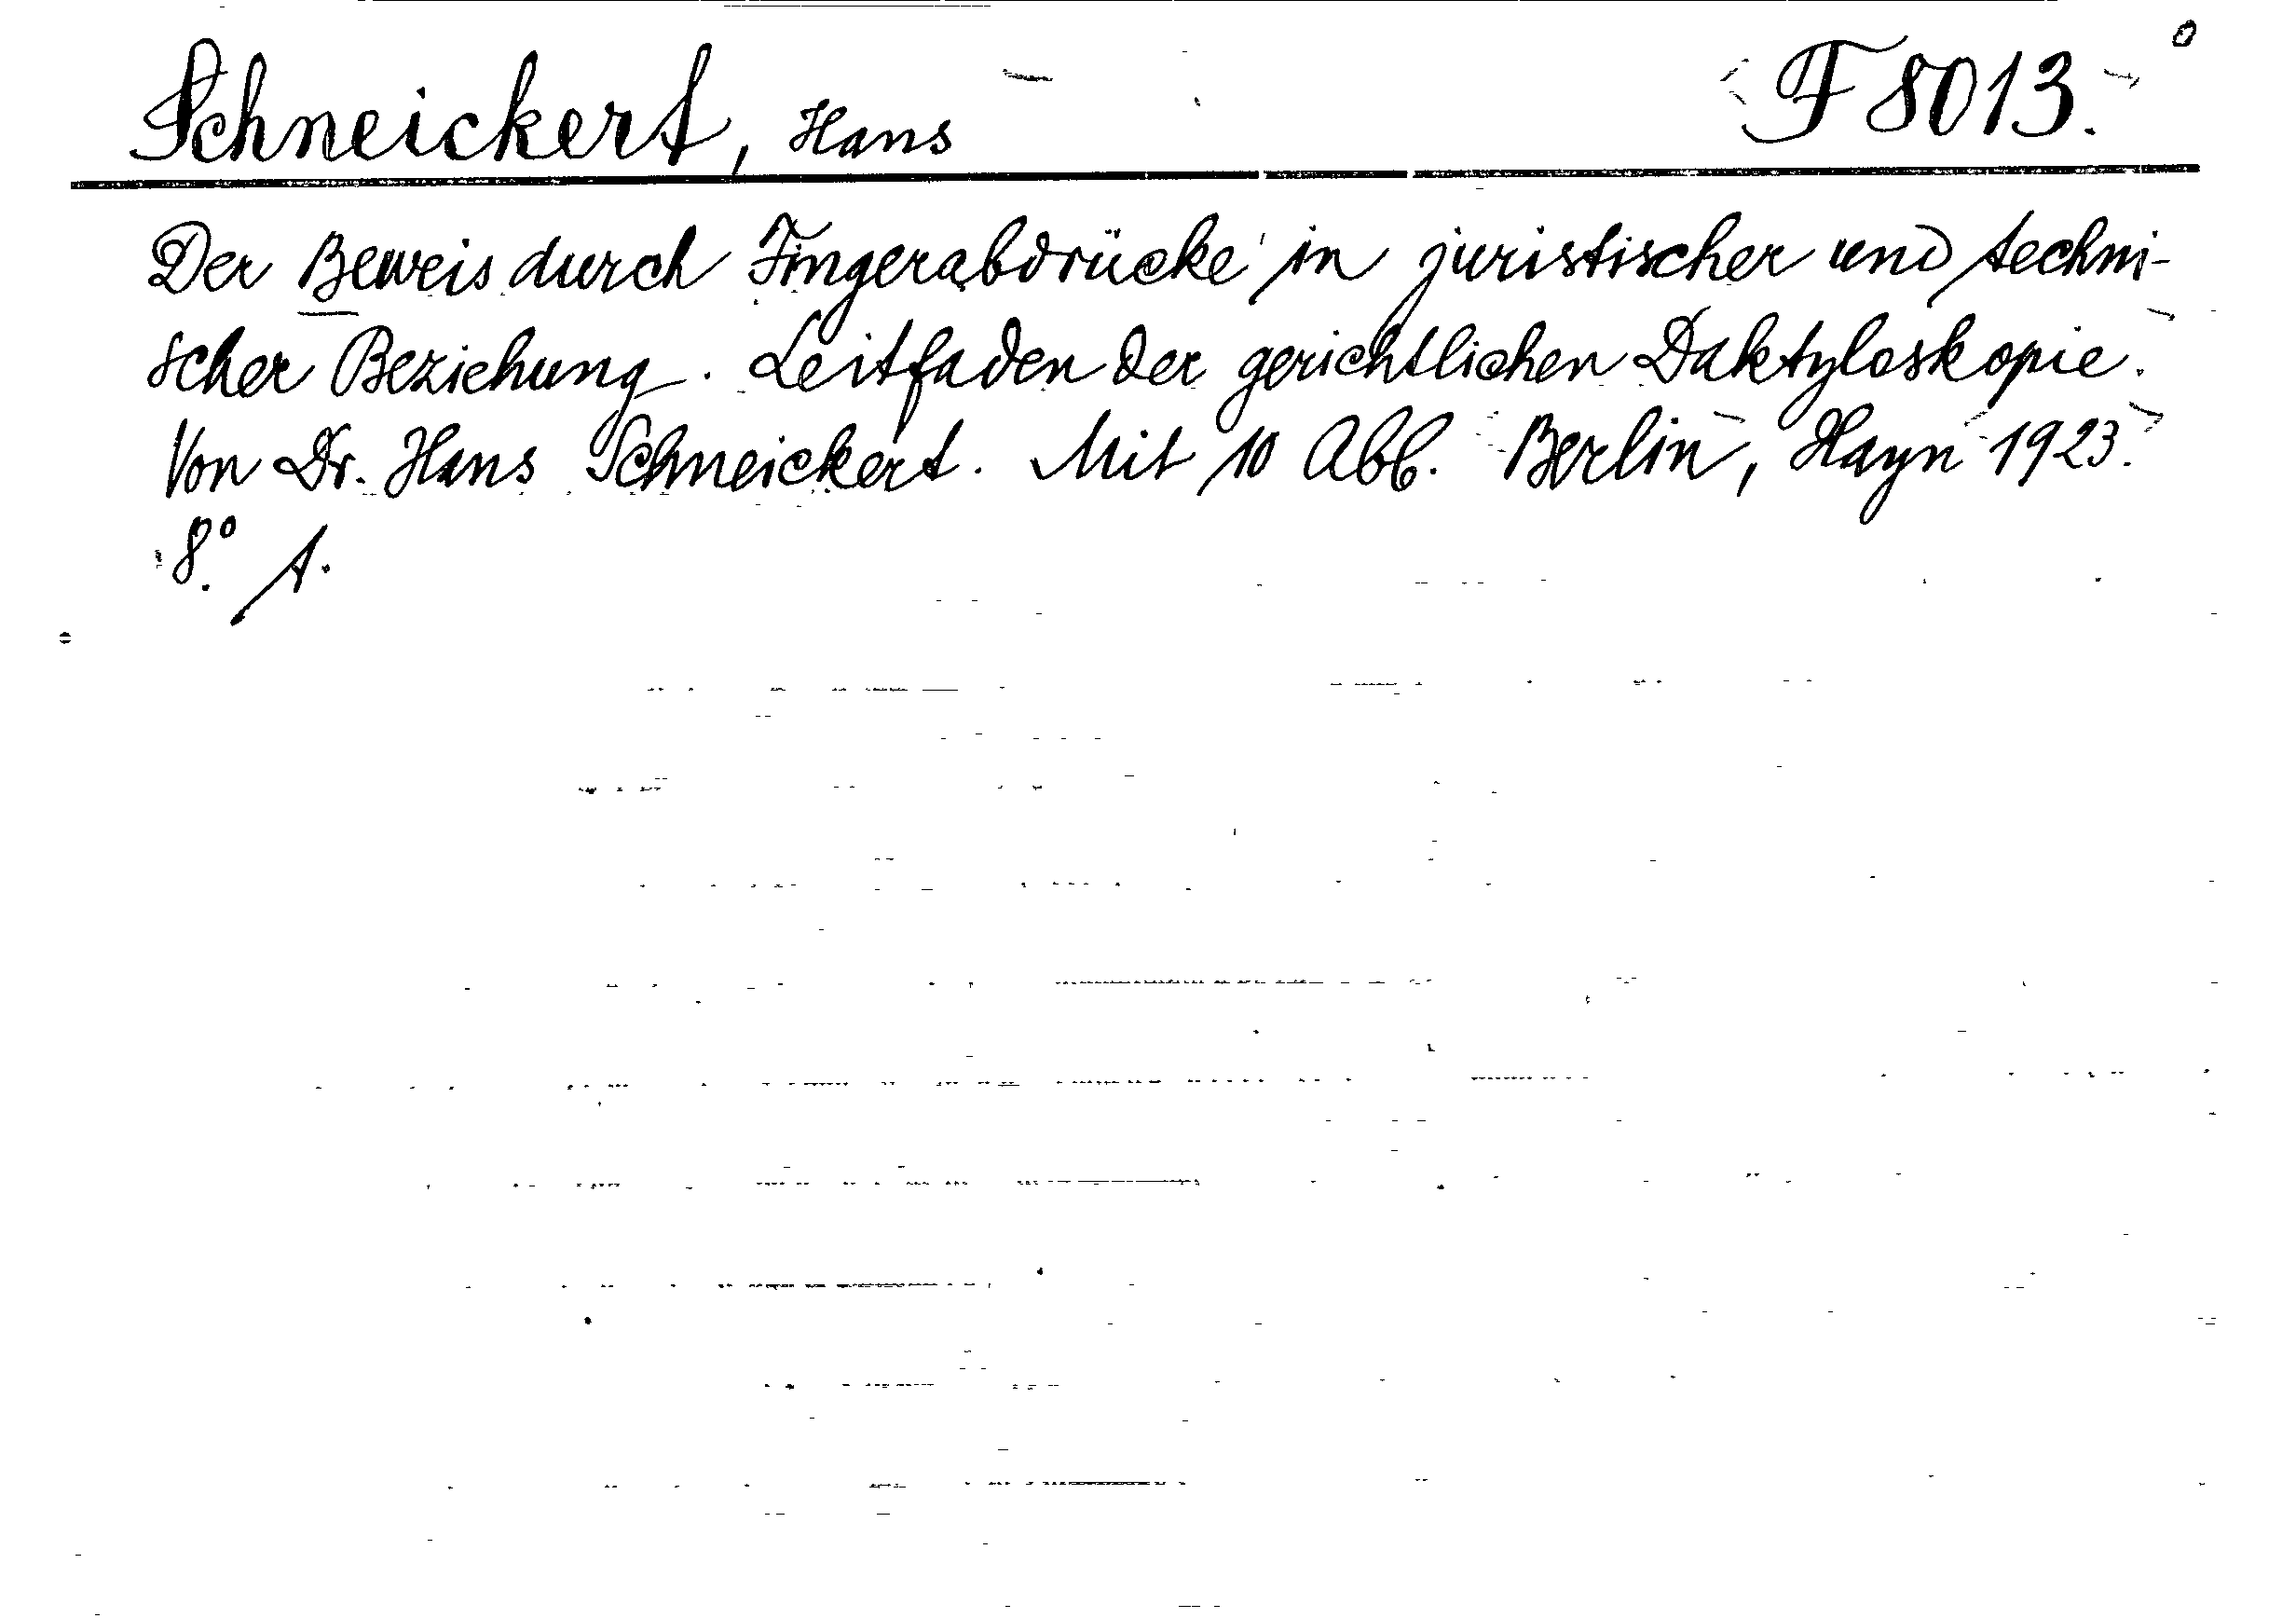 Schneickert, Hans F 8013.
Der Beweis durch Fingerabdrücke in juristischer und techni-
scher Beziehung. Leitfaden der gerichtlichen Daktyloskopie.
Von Dr. Hans Schneickert. Mit 10 Abb. Berlin, Hayn 1923.
8°. A.